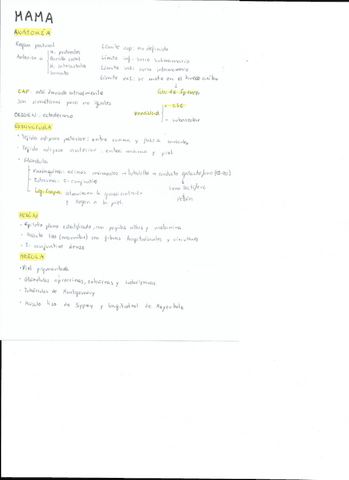 MAMA
ANATOMÍA
Región pectoral
Límite sup: no definido
Anterior a
M. pectorales
Límite inf: surco submamario
Límite int: surco intermamario
Límite ext: se mete en el hueco axilar
Cola de Spence
CAP: está
Son simétricas pero no iguales
ORIGEN: ectodermo
ESTRUCTURA
· Tejido adiposo posterior: entre mama y
· Tejido adiposo anterior: entre mama y piel
· Glándula
Parénquima: acinos mamarios → lobulillo → conducto galactóforo
Estroma: T. conjuntivo
seno lactífero
Lig. Cooper: atraviesan la grasa anterior
pezón
y llegan a la piel.
PEZÓN
· Epitelio plano estratificado, con papilas altas y melanina
· Músculo liso (mamilar) con fibras longitudinales y circulares
· T. conjuntivo denso
AREOLA
· Piel pigmentada
· Glándulas apocrinas, sebáceas y sudoríparas.
· Tubérculos de Montgomery
· Músculo liso de Sappey y longitudinal de Meyerholz